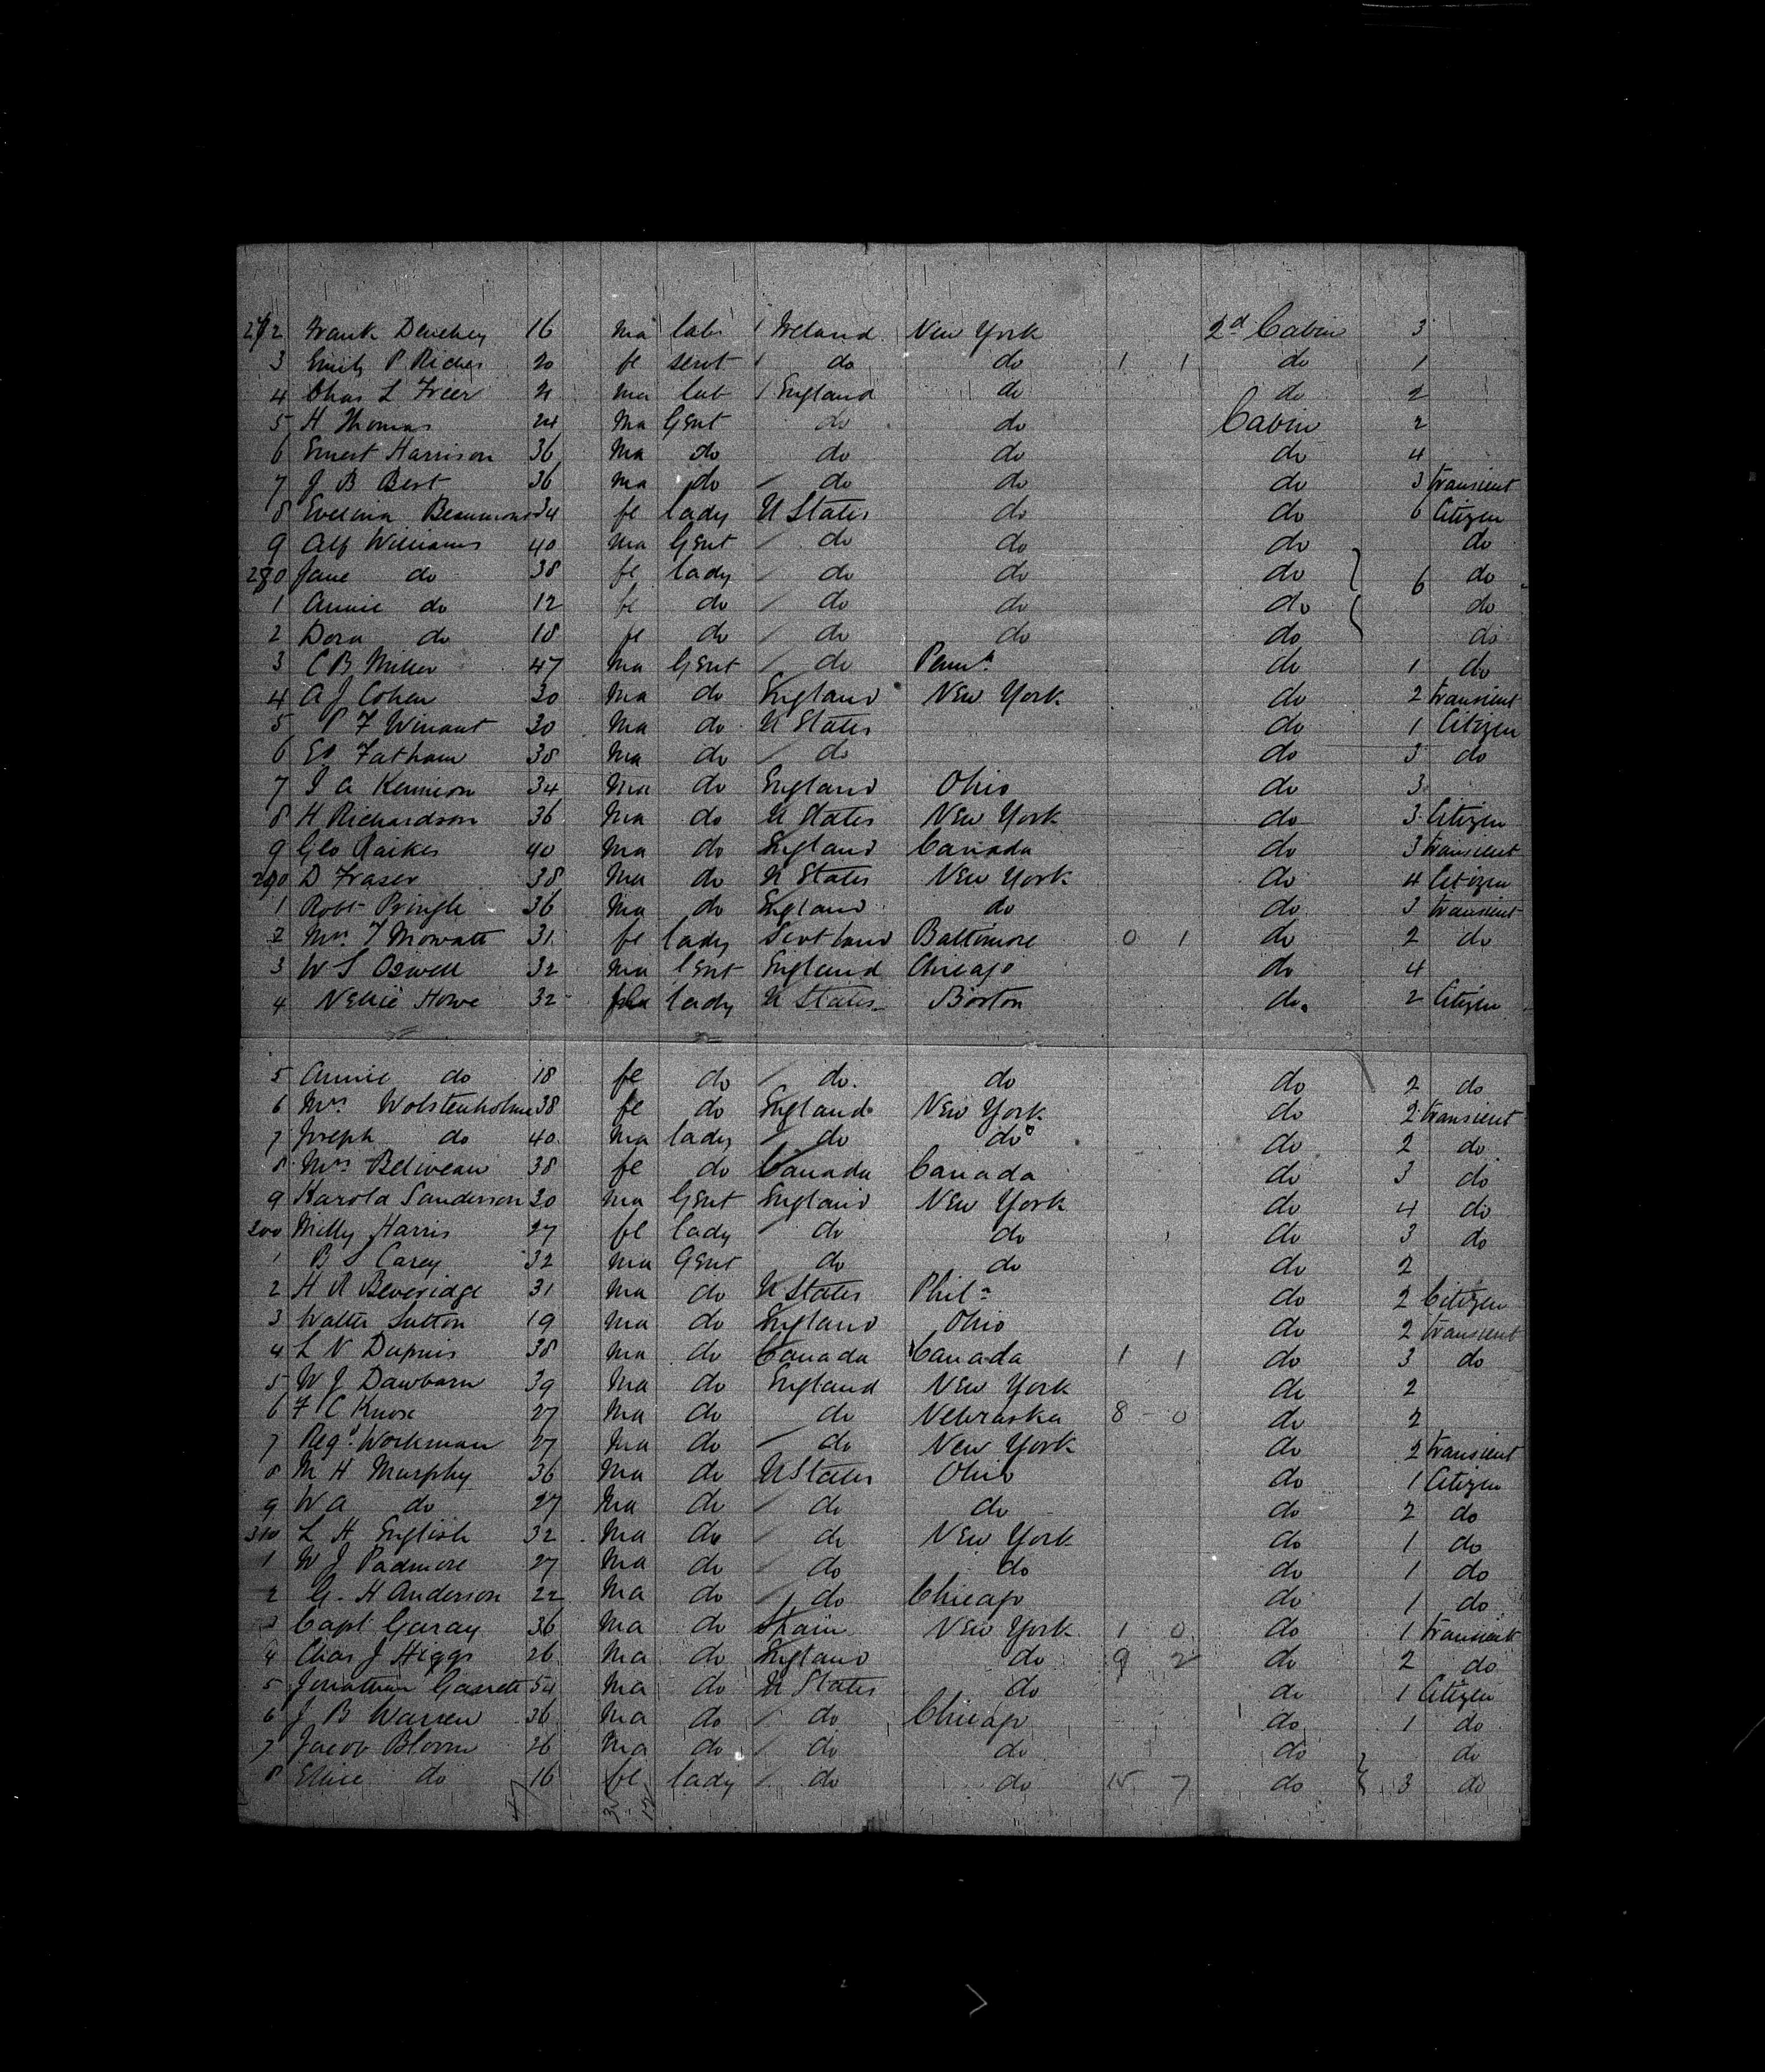 272 Frank Denehey 16 ma labr / Ireland New York 2d Cabin 3
3 Emily P Riches 20 fe servt / do do 1 1 do 1
4 Chas L Freer 21 ma lab / England do do 2
5 H Thomas 24 Ma Gent do do Cabin 2
6 Ernest Harrison 36 Ma do do do do 4
7 J B Best 36 ma do / do do do 3 transient
8 Evelina Beaumont 34 fe lady U States do do 6 Citizen
9 Alf Williams 40 Ma Gent / do do do do
280 Jane do 38 fe lady / do do do 6 do
1 Annie do 12 fe do / do do do do
2 Dora do 18 fe do / do do do do
3 C B Miller 47 Ma Gent / do Penna do 1 do
4 A J Cohen 30 Ma do England New York do 2 transient
5 P F Winant 30 Ma do U States do 1 Citizen
6 Ed Fatham 38 Ma do / do do 3 do
7 J A Kennion 34 Ma do England Ohio do 3
8 H Richardson 36 Ma do U States New York do 3 Citizen
9 Geo Raikes 40 Ma do England Canada do 3 transient
290 D Fraser 38 Ma do U States New York do 4 Citizen
1 Robt Pringle 36 Ma do England do do 3 transient
2 Mrs F Mowatt 31 fe lady Scotland Baltimore 0 1 do 2 do
3 W S Oswell 32 ma Gent England Chicago do 4
4 Nellie Howe 32 lady U States Boston do 2 Citizen
5 Annie do 18 fe do / do do do 2 do
6 Mrs Wolstenholme 38 fe do England New York do 2 transient
7 Joseph do 40 Ma lady / do do do 2 do
8 Mrs Beliveau 38 fe do Canada Canada do 3 do
9 Harold Sanderson 30 ma Gent England New York do 4 do
200 Milly Harris 27 fe lady / do do do 3 do
1 B S Carey 32 ma Gent do do do 2
2 H R Beveridge 31 Ma do U States Phila do 2 Citizen
3 Walter Sutton 19 ma do England Ohio do 2 transient
4 L N Dupuis 38 ma do Canada Canada 1 1 do 3 do
5 W J Dawbarn 39 Ma do England New York do 2
6 F C Knox 27 Ma do do Nebraska 8 - 0 do 2
7 Regd Workman 27 Ma do / do New York do 2 transient
8 M H Murphy 36 Ma do U States Ohio do 1 Citizen
9 W A do 27 Ma do / do do do 2 do
310 L H English 32 Ma do / do New York do 1 do
1 W J Padmore 27 Ma do / do do do 1 do
2 G. H Anderson 22 Ma do / do Chicago do 1 do
3 Capt Garay 36 Ma do Spain New York 1 0 do 1 transient
4 Chas J Higgs 26 Ma do England do 9 2 do 2 do
5 Jonathan Garrett 54 Ma do U States do do 1 Citizen
6 J B Warren 36 Ma do / do Chicago do 1 do
7 Jacob Bloom 26 Ma do / do do do do
8 Ellise do 16 fe lady / do do 15 7 do 3 do